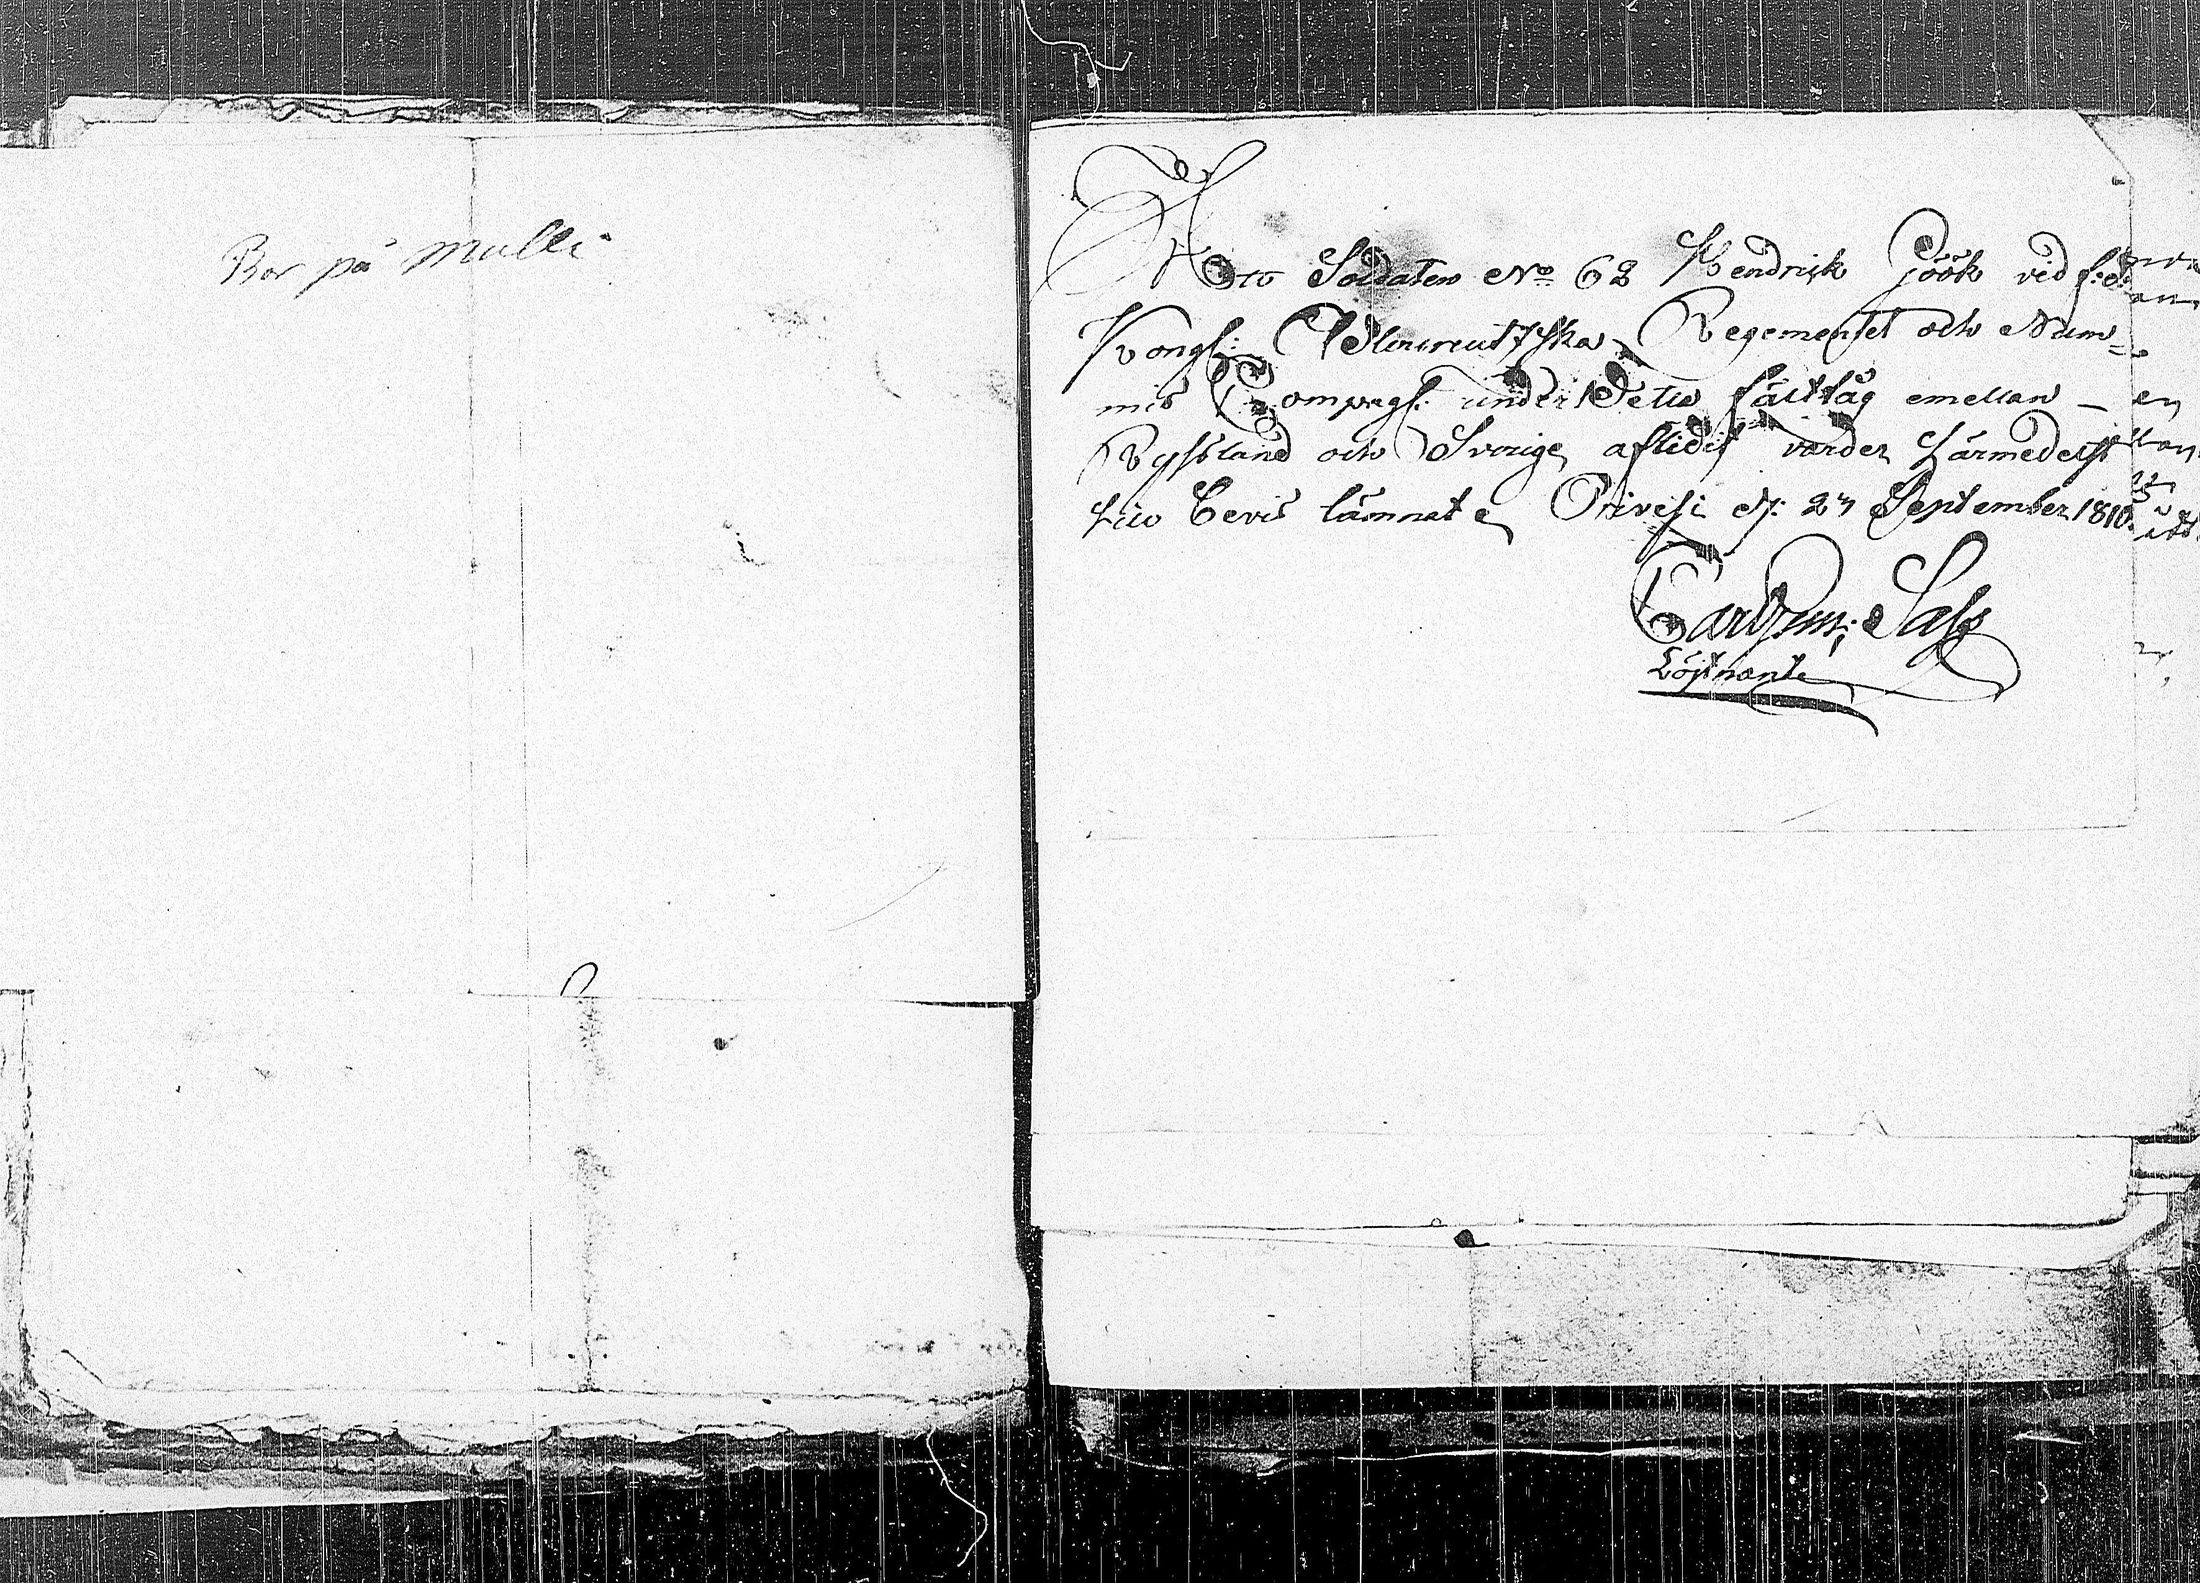 Bor på Mulli
At Soldaten No 62 Hendrik Göök vid f:d:
Kongl: Adlercreutzska Regementet och Num-
mis Compagl: under Sista fälttåg emellan
Ryssland och Sverige aflidit varder härmedelst
till Bevis lämnat. Orivesi d: 27 September 1810.
Carl Sass
Löjtnant